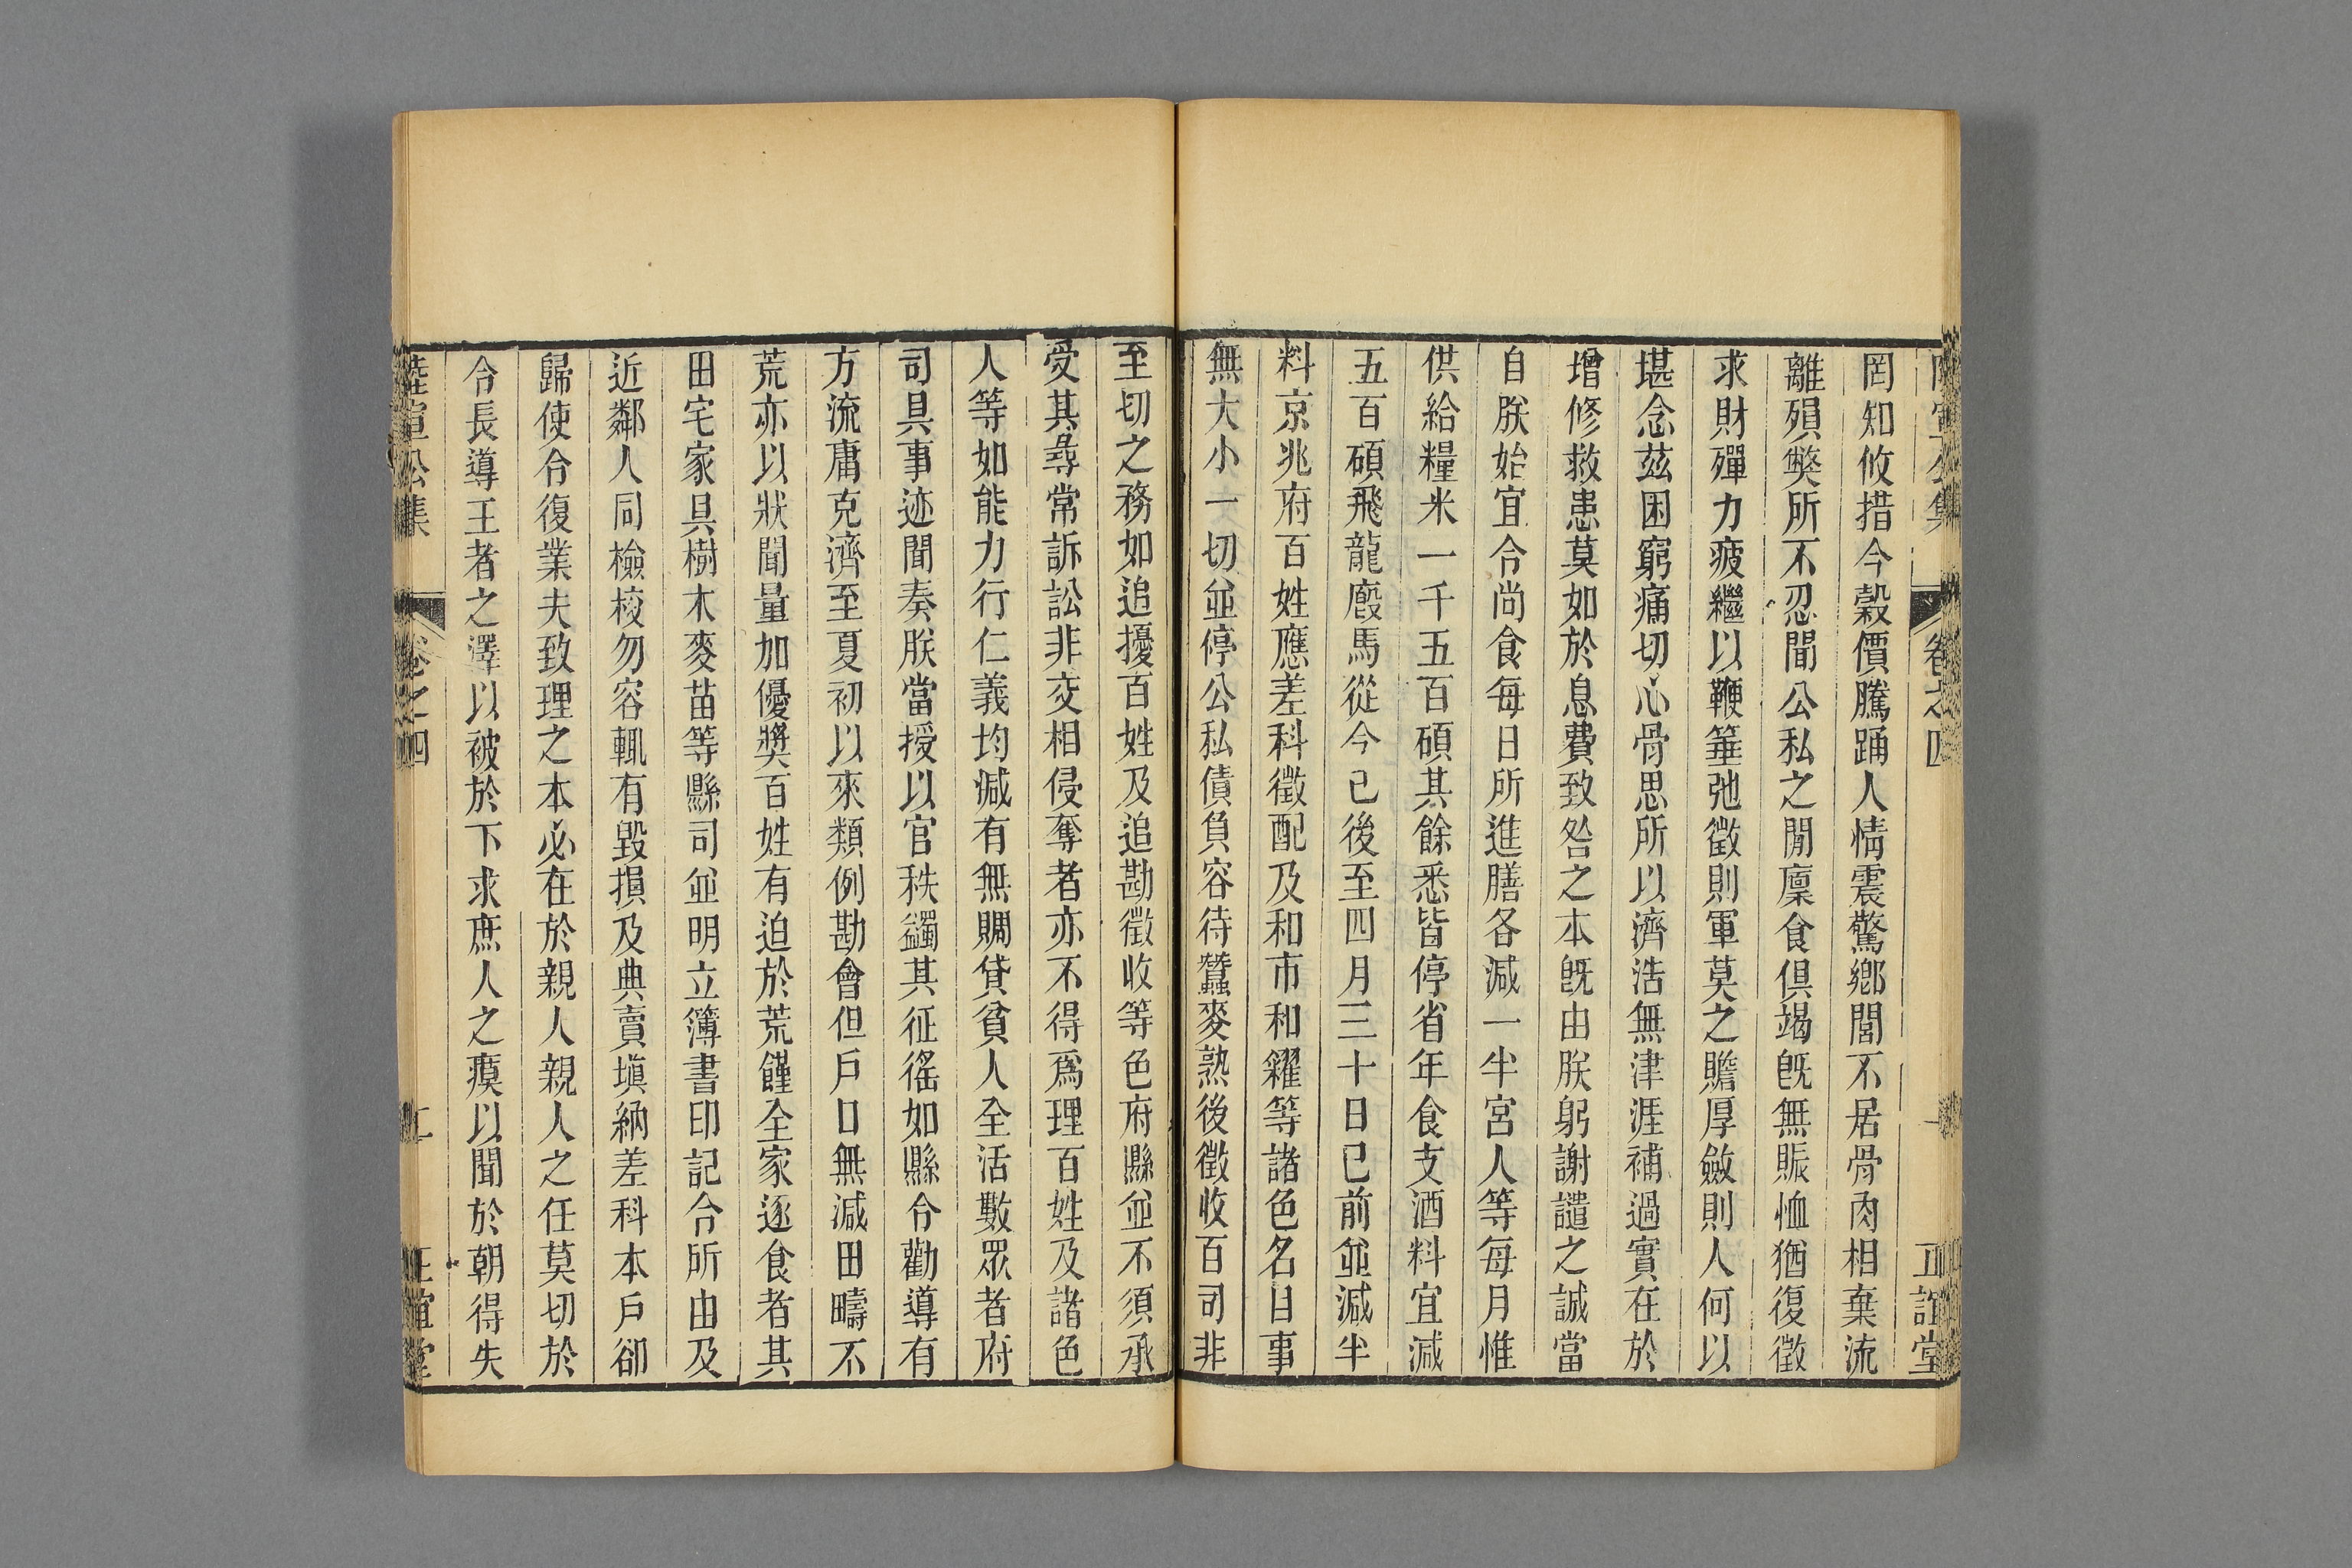 罔知攸措今穀價騰踊人情震驚鄉閭不居骨肉相棄流
離殞斃所不忍聞公私之閒廩食俱竭旣無賑恤猶復徵
求財殫力疲繼以鞭箠弛徵則軍莫之贍厚斂則人何以
堪念茲困窮痛切心骨思所以濟浩無津涯補過實在於
增修救患莫如於息費致咎之本旣由朕躬謝譴之誠當
自朕始宜令尚食每日所進膳各減一半宮人等每月惟
供給糧米一千五百碩其餘悉皆停省年食支酒料宜減
五百碩飛龍廄馬從今已後至四月三十日已前並減半
料京兆府百姓應差科徵配及和市和糴等諸色名目事
無大小一切並停公私債負容待蠶麥熟後徵收百司非
至切之務如追擾百姓及追勘徵收等色府縣並不須承
受其尋常訴訟非交相侵奪者亦不得爲理百姓及諸色
人等如能力行仁義均減有無賙貸貧人全活數眾者府
司具事迹聞奏朕當授以官秩蠲其征徭如縣令勸導有
方流庸克濟至夏初以來類例勘會但戶口無減田疇不
荒亦以狀聞量加優獎百姓有迫於荒饉全家逐食者其
田宅家具樹木麥苗等縣司並明立簿書印記令所由及
近鄰人同檢校勿容輒有毀損及典賣塡納差科本戶卻
歸使令復業夫致理之本必在於親人親人之任莫切於
令長導王者之澤以被於下求庶人之瘼以聞於朝得失
陸宣公集
卷之四
二
正誼堂